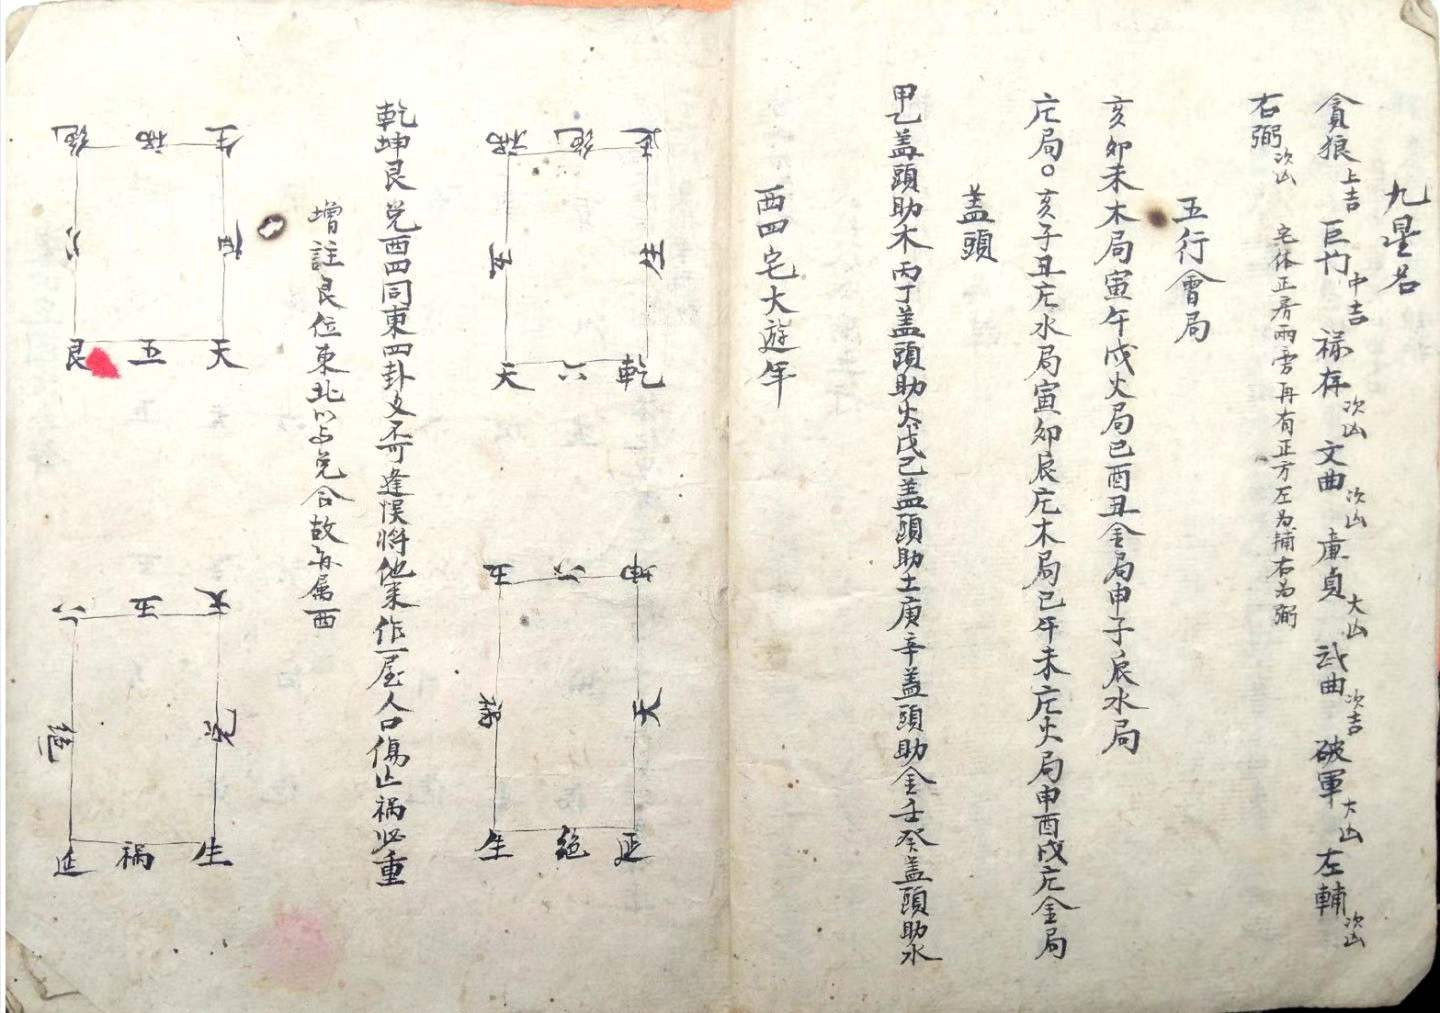 九星名
貪狼上吉 巨門中吉 禄存次凶 文曲次凶 廉貞大凶 武曲次吉 破軍大凶 左輔次凶
右弼次凶 宅体正房兩旁再有正方左为辅右为弼
五行會局
亥卯未木局寅午戌火局巳酉丑金局申子辰水局
庀局。亥子丑庀水局寅卯辰庀木局巳午未庀火局申酉戌庀金局
蓋頭
甲乙盖頭助木丙丁盖頭助火戊己盖頭助土庚辛盖頭助金壬癸盖頭助水
西四宅大遊年
延 絶 禍
生 五
乾 六 天
坤 六 五
天 禍
延 絶 生
乾坤艮兌西四同東四卦爻不可逢悮將他来作一屋人口傷亡禍必重
增註艮位東北以与兌合故再屬西
生 禍 絶
延 六
天 五 艮
天 五 六
兌 絶
生 禍 延